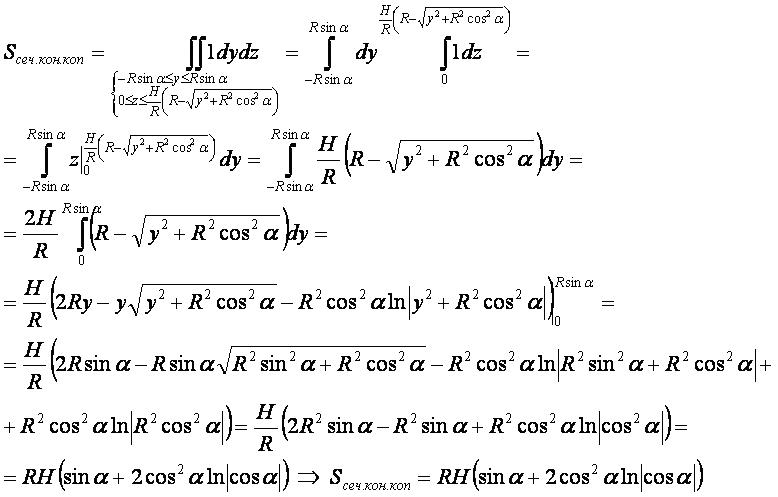 S_{сеч.кон.коп} = ∬_{\begin{cases} -R\sin α≤y≤R\sin α \\ 0≤z≤\frac{H}{R}(R-\sqrt{y^2+R^2\cos^2 α}) \end{cases}} 1dydz = ∫_{-R\sin α}^{R\sin α} dy ∫_0^{\frac{H}{R}(R-\sqrt{y^2+R^2\cos^2 α})} 1dz =
= ∫_{-R\sin α}^{R\sin α} z|_0^{\frac{H}{R}(R-\sqrt{y^2+R^2\cos^2 α})} dy = ∫_{-R\sin α}^{R\sin α} \frac{H}{R}(R-\sqrt{y^2+R^2\cos^2 α})dy =
= \frac{2H}{R} ∫_0^{R\sin α} (R-\sqrt{y^2+R^2\cos^2 α})dy =
= \frac{H}{R}(2Ry-y\sqrt{y^2+R^2\cos^2 α}-R^2\cos^2 α\ln|y^2+R^2\cos^2 α|)|_0^{R\sin α} =
= \frac{H}{R}(2R\sin α-R\sin α\sqrt{R^2\sin^2 α+R^2\cos^2 α}-R^2\cos^2 α\ln|R^2\sin^2 α+R^2\cos^2 α|+
+R^2\cos^2 α\ln|R^2\cos^2 α|)=\frac{H}{R}(2R^2\sin α-R^2\sin α+R^2\cos^2 α\ln|\cos^2 α|)=
= RH(\sin α+2\cos^2 α\ln|\cos α|) ⇒ S_{сеч.кон.коп} = RH(\sin α+2\cos^2 α\ln|\cos α|)